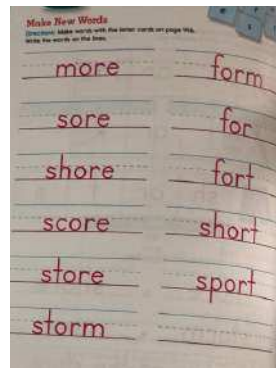 Make New Words
Directions: Make words with the letter cards on page 146.
Write the words on the lines.
more
form
sore
for
shore
fort
score
short
store
sport
storm